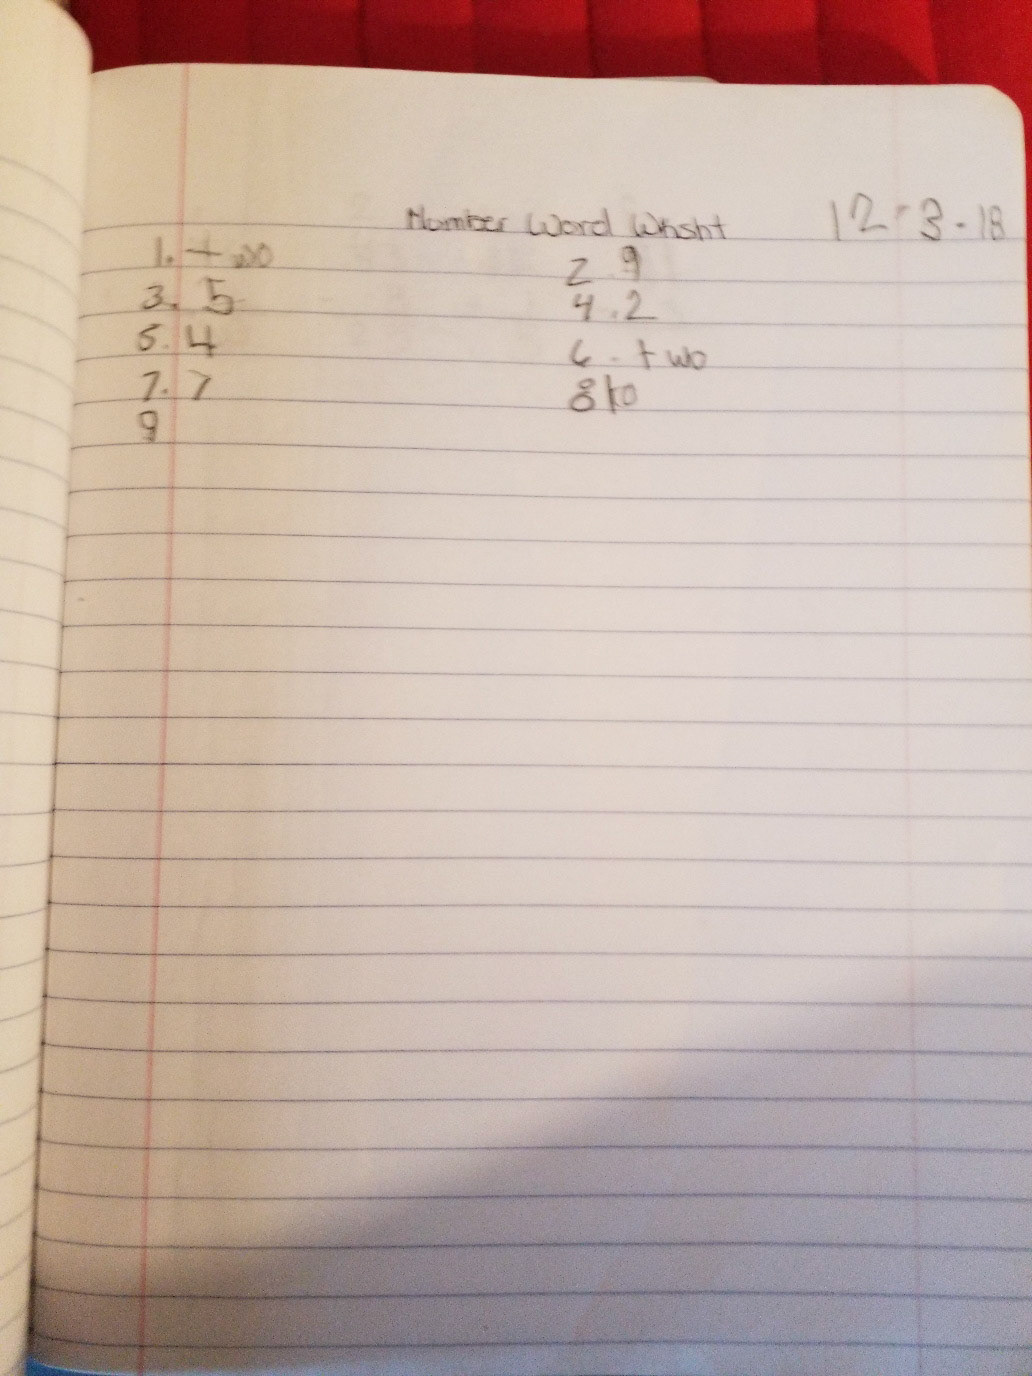 Number Word Whsht 12-3-18
1. two 2 9
3. 5 4.2
5. 4 6. two
7. 7 8 10
9